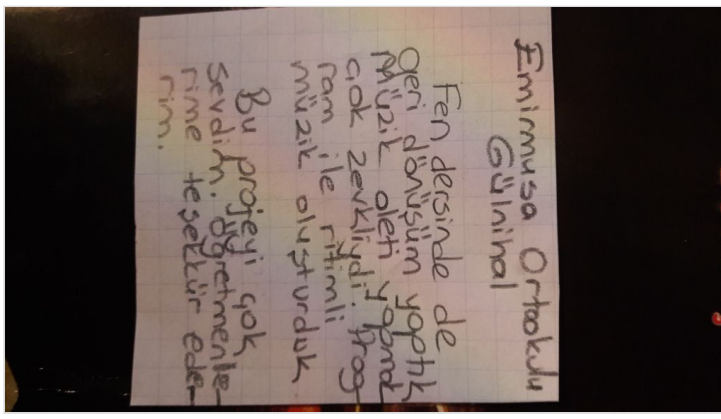 Emirmusa Ortaokulu
Gülnihal
Fen dersinde de
geri dönüşüm yaptık
Müzik aleti yapmak
çok zevkliydi. Prog
ram ile ritimli
müzik oluşturduk
Bu projeyi çok
sevdim. öğretmenle-
rime teşekkür ede-
rim.